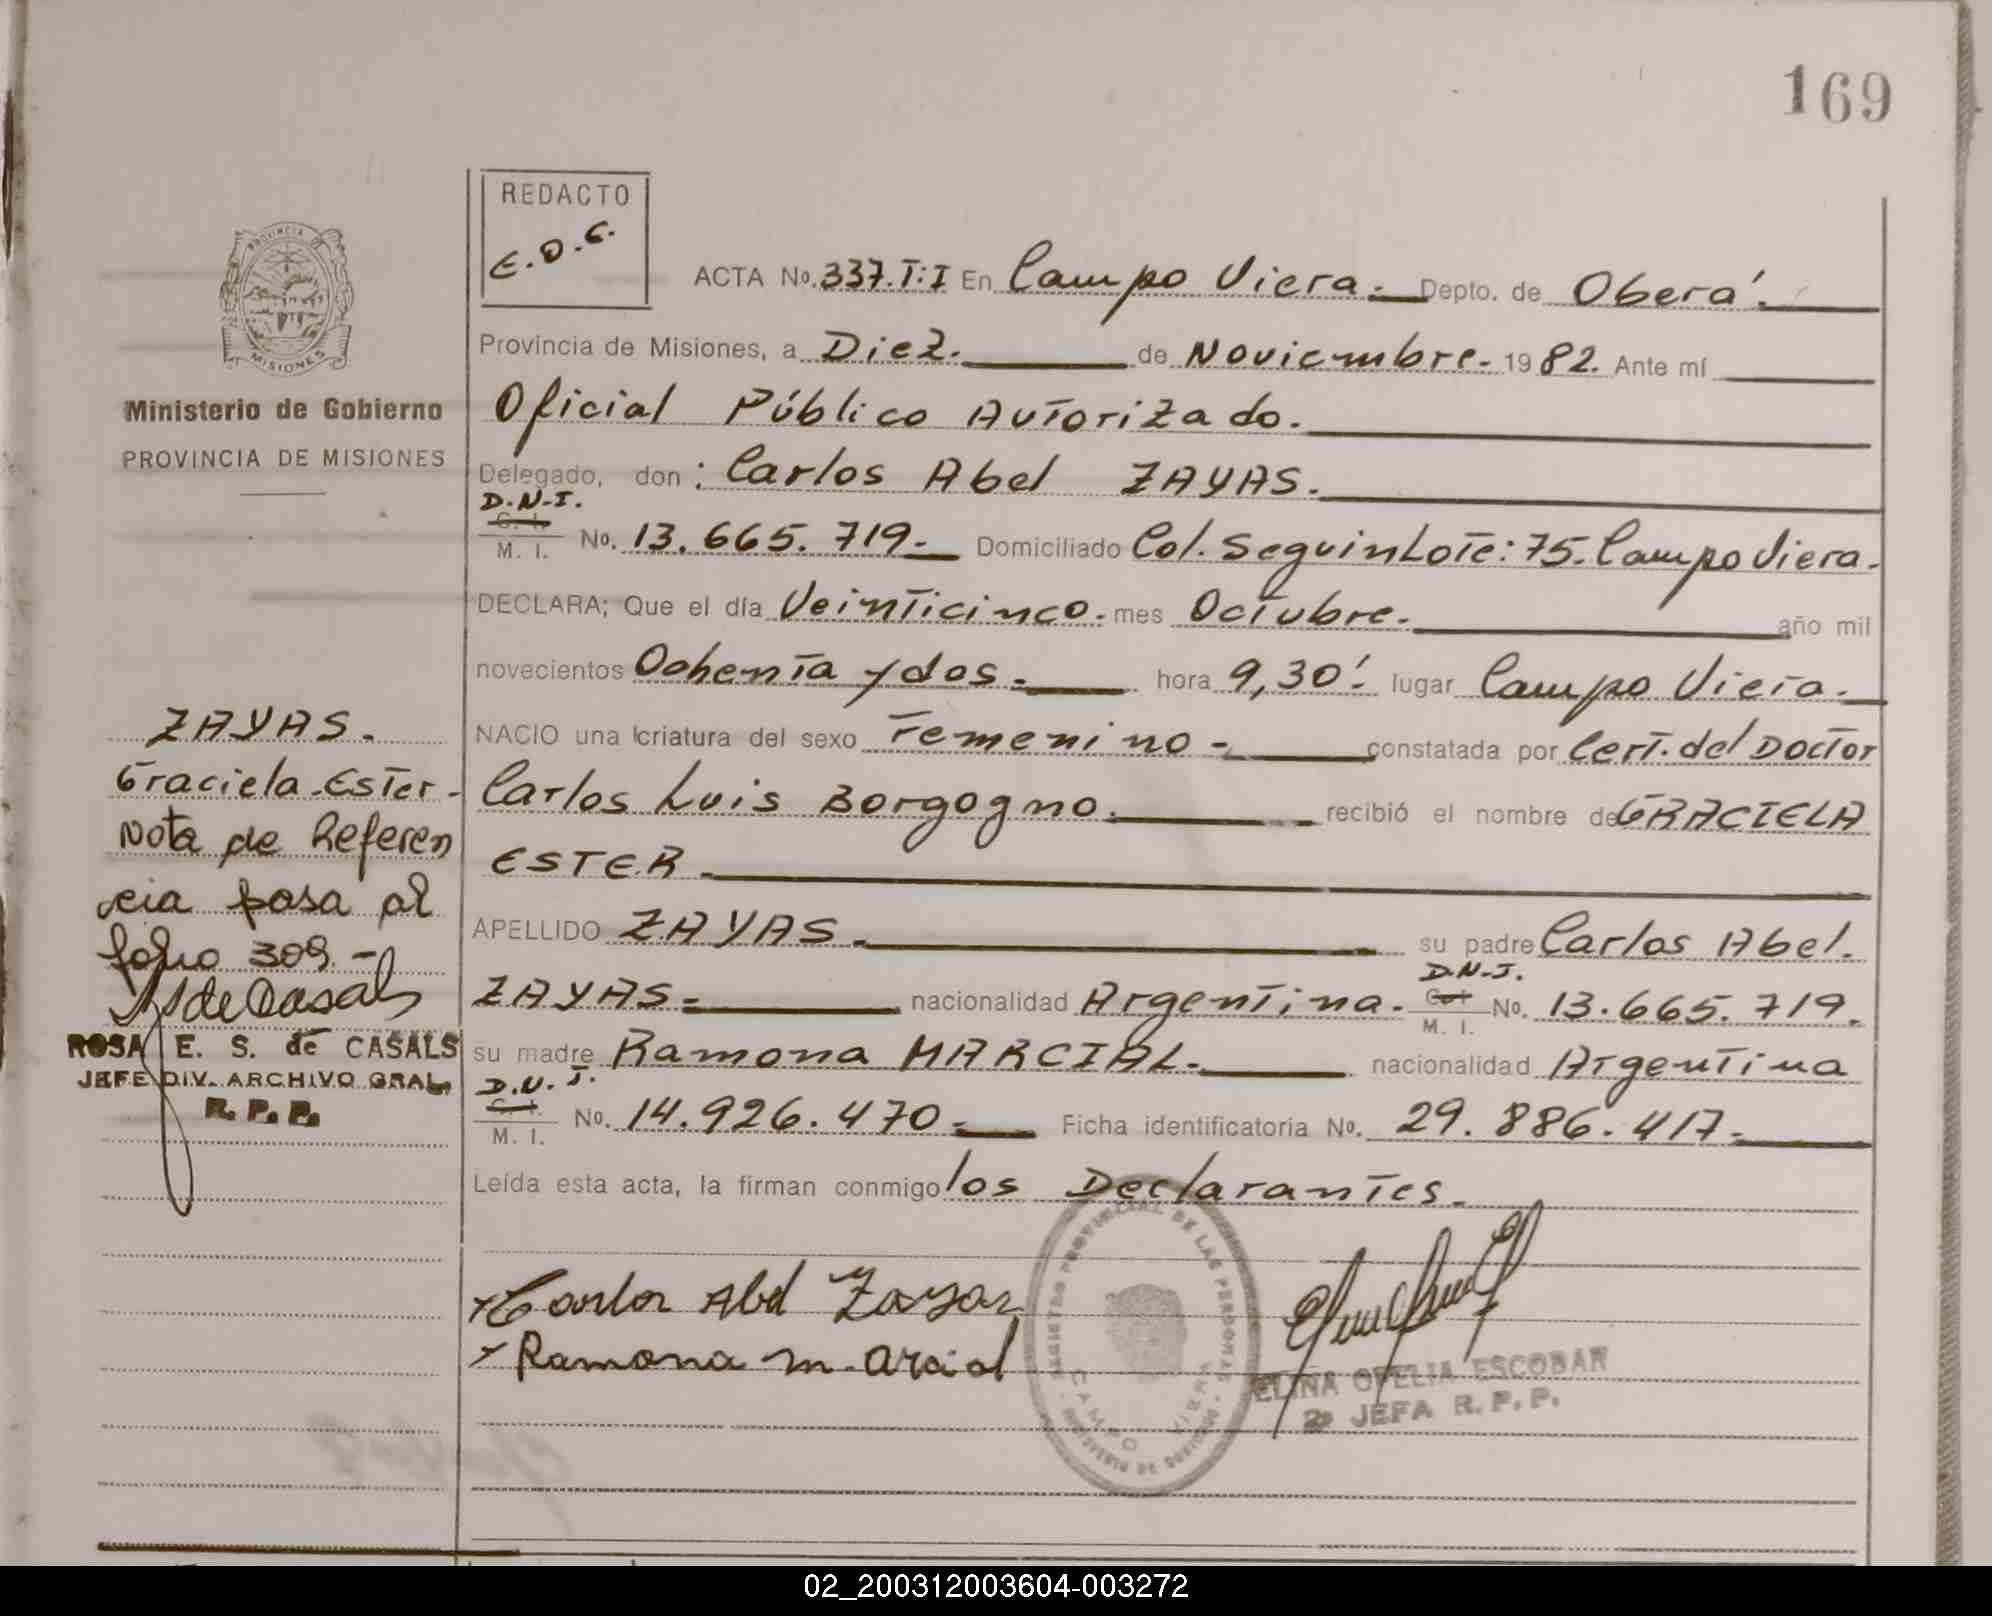 169
REDACTO
E.O.E.
PROVINCIA DE
MISIONES
Ministerio de Gobierno
PROVINCIA DE MISIONES
ACTA No. 337.T:I En Campo Viera. Depto. de Oberá.
Provincia de Misiones, a Diez. de Noviembre. 1982. Ante mí
Oficial Público Autorizado.
Delegado, don: Carlos Abel ZAYAS.
D.N.I.
C. I.
M. I. No. 13.665.719. Domiciliado Col. Seguin Lote: 75. Campo Viera.
DECLARA; Que el día Veinticinco. mes Octubre. año mil
novecientos Ochenta y dos. hora 9,30'. lugar Campo Viera.
NACIO una criatura del sexo Femenino - constatada por Cert. del Doctor
Carlos Luis Borgogno. recibió el nombre de GRACIELA
ESTER
APELLIDO ZAYAS. su padre Carlos Abel.
D.N.I.
ZAYAS. nacionalidad Argentina. C. I. M. I. No. 13.665.719.
su madre Ramona MARCIAL. nacionalidad Argentina
D.N.I.
C. I.
M. I. No. 14.926.470. Ficha identificatoria No. 29.886.417.
Leída esta acta, la firman conmigo los Declarantes.
Carlos Abel Zayas
Ramona Marcial
REGISTRO PROVINCIAL DE LAS PERSONAS
CAMPO VIERA
ELINA OFELIA ESCOBAR
2º JEFA R.P.P.
ZAYAS.
Graciela Ester-
Nota de Referen
cia pasa al
folio 309.-
ROSA E. S. de CASALS
JEFE DIV. ARCHIVO GRAL.
R. P. P.
02_200312003604-003272